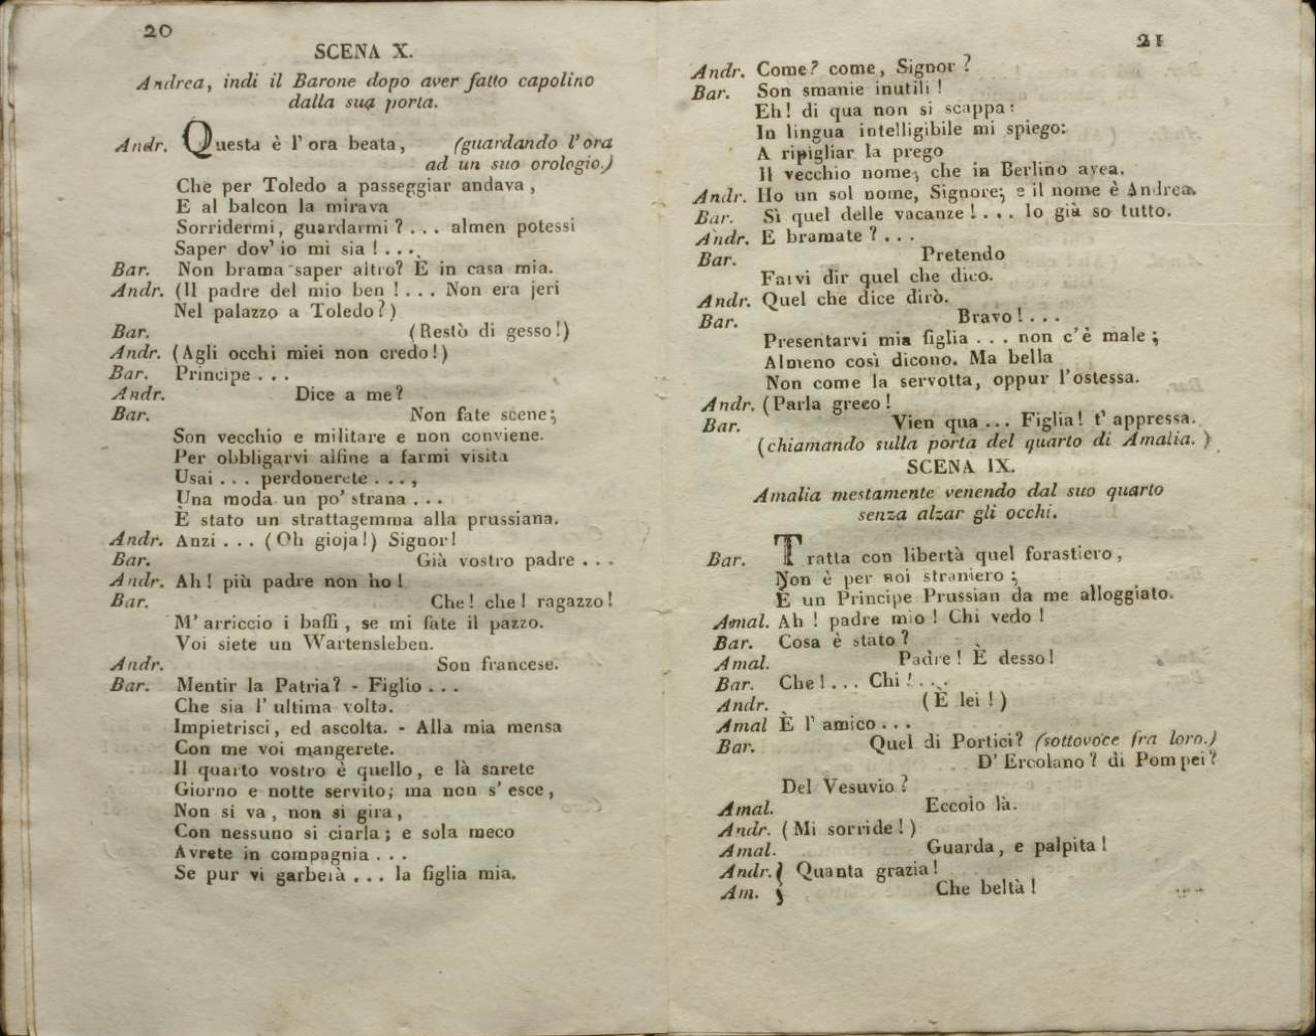 20
SCENA X.
Andrea, indi il Barone dopo aver fatto capolino
dalla sua porta.
Andr. Questa è l' ora beata, (guardando l' ora
ad un suo orologio.)
Che per Toledo a passeggiar andava,
E al balcon la mirava
Sorridermi, guardarmi ? . . . almen potessi
Saper dov' io mi sia ! . . .
Bar. Non brama saper altro? È in casa mia.
Andr. (Il padre del mio ben ! . . . Non era jeri
Nel palazzo a Toledo?)
Bar. (Restò di gesso!)
Andr. (Agli occhi miei non credo!)
Bar. Principe . . .
Andr. Dice a me?
Bar. Non fate scene;
Son vecchio e militare e non conviene.
Per obbligarvi alfine a farmi visita
Usai . . . perdonerete . . . ,
Una moda un po' strana . . .
È stato un strattagemma alla prussiana.
Andr. Anzi . . . (Oh gioja!) Signor!
Bar. Già vostro padre . . .
Andr. Ah! più padre non ho!
Bar. Che! che! ragazzo!
M' arriccio i baffi, se mi fate il pazzo.
Voi siete un Wartensleben.
Andr. Son francese.
Bar. Mentir la Patria? - Figlio . . .
Che sia l' ultima volta.
Impietrisci, ed ascolta. - Alla mia mensa
Con me voi mangerete.
Il quarto vostro è quello, e là sarete
Giorno e notte servito; ma non s' esce,
Non si va, non si gira,
Con nessuno si ciarla; e sola meco
Avrete in compagnia . . .
Se pur vi garberà . . . la figlia mia.
21
Andr. Come? come, Signor ?
Bar. Son smanie inutili !
Eh! di qua non si scappa:
In lingua intelligibile mi spiego:
A ripigliar la prego
Il vecchio nome, che in Berlino avea.
Andr. Ho un sol nome, Signore; e il nome è Andrea.
Bar. Sì quel delle vacanze! . . . Io già so tutto.
Andr. E bramate ? . . .
Bar. Pretendo
Farvi dir quel che dico.
Andr. Quel che dice dirò.
Bar. Bravo! . . .
Presentarvi mia figlia . . . non c'è male ;
Almeno così dicono. Ma bella
Non come la servotta, oppur l'ostessa.
Andr. (Parla greco!
Bar. Vien qua ... Figlia! t' appressa.
(chiamando sulla porta del quarto di Amalia. )
SCENA IX.
Amalia mestamente venendo dal suo quarto
senza alzar gli occhi.
Bar. Tratta con libertà quel forastiero,
Non è per noi straniero ;
È un Principe Prussian da me alloggiato.
Amal. Ah ! padre mio ! Chi vedo !
Bar. Cosa è stato ?
Amal. Padre! È desso!
Bar. Che! . . . Chi ! . . .
Andr. (È lei !)
Amal È l' amico . . .
Bar. Quel di Portici? (sottovoce fra loro.)
D' Ercolano? di Pompei?
Del Vesuvio ?
Amal. Eccolo là.
Andr. (Mi sorride!)
Amal. Guarda, e palpita !
Andr. } Quanta grazia!
Am. } Che beltà !